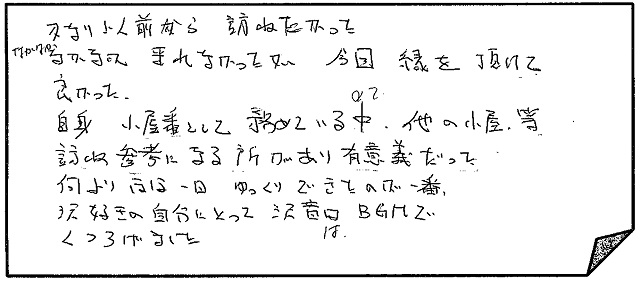 かなり以前から 訪ねたかった
なかなか 来れなかったが 今回 縁を 頂けて
良かった.
自身 小屋番として 務めている中. 他の小屋.等
訪ね 参考になる所があり 有意義だった
何より ほぼ一日 ゆっくりできたのが一番.
沢好きの自分にとって 沢音は BGMで
くつろげました